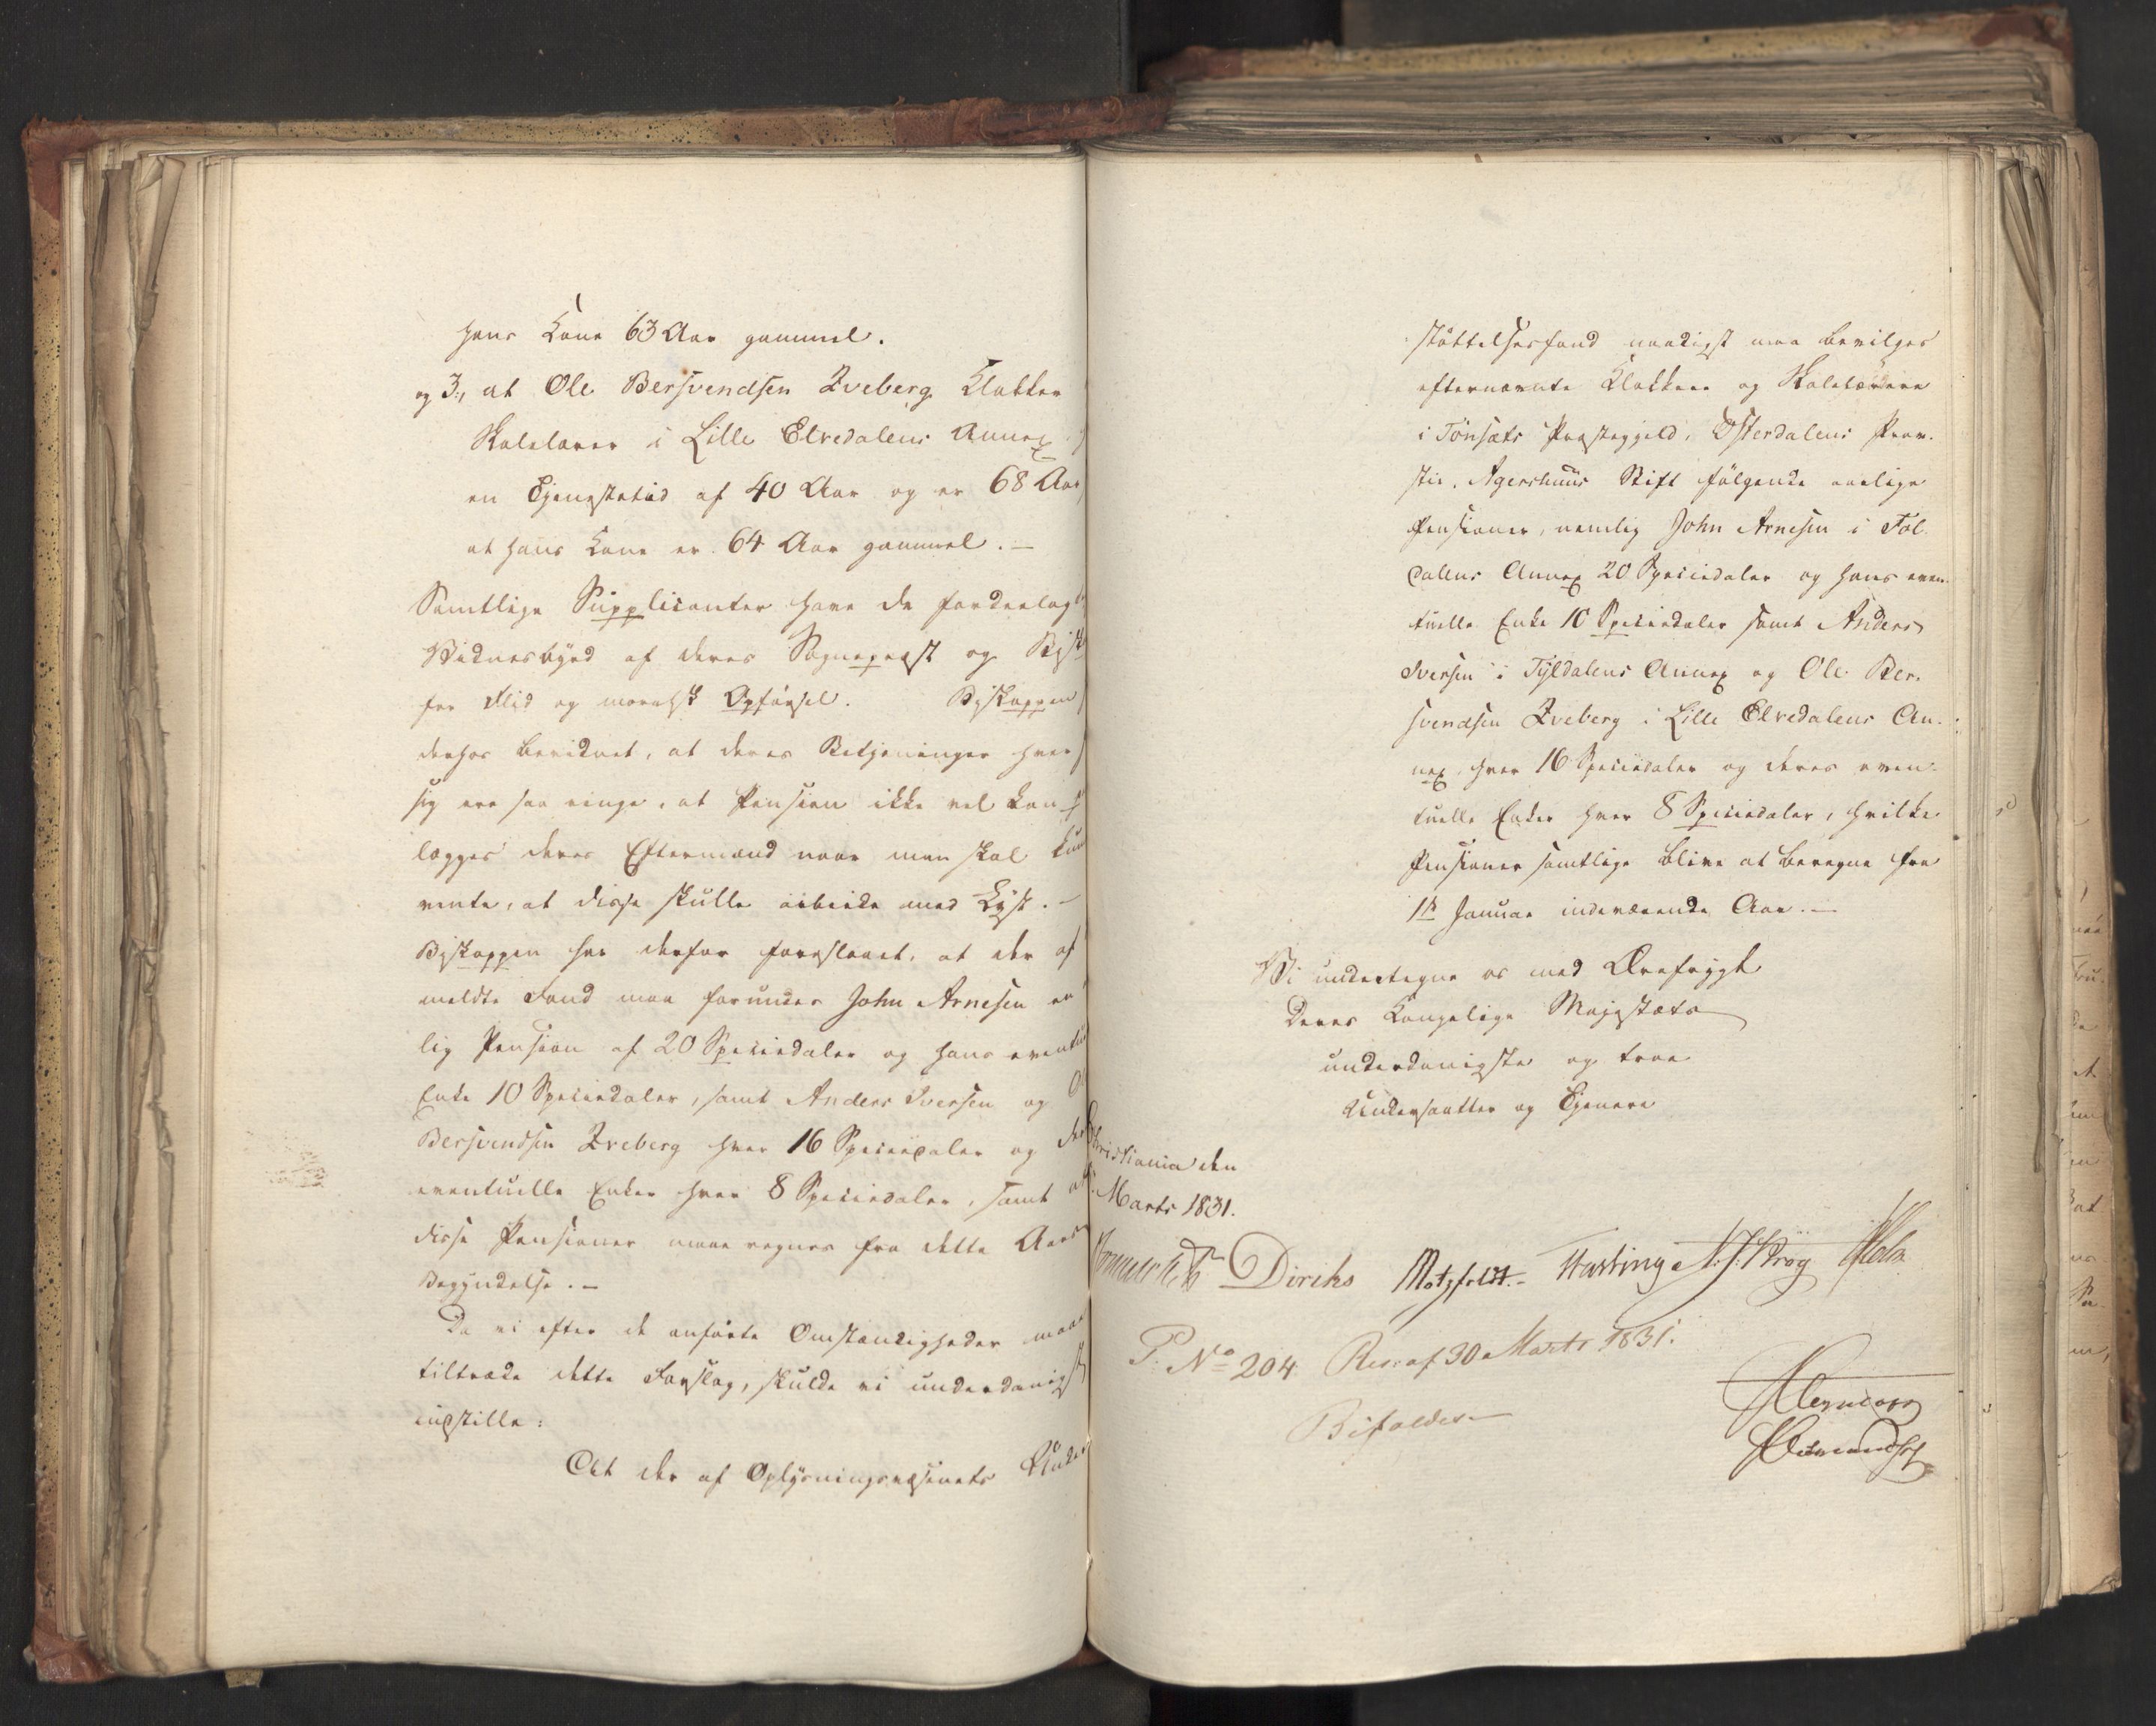 hans Kone 63 Aar gammel.
og 3., at Ole Bersvendsen Zveberg Klokker
Skolelærer i Lille Elvedalens Annex
en Tjenestetid af 40 Aar og er 68 Aar
at hans Kone er 64 Aar gammel. –
Samtlige Supplicanter have de fordeelagt
Vidnesbyrd af deres Sognepræst og
for Flid og moralsk Opførsel. Biskoppen
derhos bevidnet, at deres Betjeninger hver
sig ere saa ringe, at Pension ikke vel kan
lægges deres Eftermænd naar man skal kun
vente, at disse skulle arbeide med Lyst. –
Biskoppen har derfor foreslaaet, at der af
meldte Fond maa forundes John Arnesen
lig Pension af 20 Speciedaler og hans
Enke 10 Speciedaler, samt Anders Iversen og
Bersvendsen Zveberg hver 16 Speciedaler og
eventuelle Enker hver 8 Speciedaler, samt at
disse Pensioner maae regnes fra dette Aars
Begyndelse. –
Da vi efter de anførte Omstændigheder maae
tiltræde dette Forslag, skulde vi underdanigst
indstille:
At der af Oplysningsvæsenets Under
støttelsesfond naadigst maa bevilges
efternævnte Klokkere og Skolelærere
i Tønsæts Præstegjeld, Østerdalens Prov-
stie, Agershuus Stift følgende aarlige
Pensioner, nemlig John Arnesen i Tol
dalens Annex 20 Speciedaler og hans even-
tuelle Enke 10 Speciedaler samt Anders
Iversen i Tyldalens Annex og Ole Ber-
svendsen Zveberg i Lille Elvedalens An-
nex, hver 16 Speciedaler og deres even-
tuelle Enker hver 8 Speciedaler, hvilke
Pensioner samtlige blive at beregne fra
1ste Januar indeværende Aar. –
Vi undertegne os med Ærefrygt
Deres Kongelige Majestæts
underdanigste og troe
Undersaatter og Tjenere
Christiania den
Marts 1831.
Diriks Motzfeldt. –
P. No 204. Res: af 30 Marts 1831.
Bifaldes –